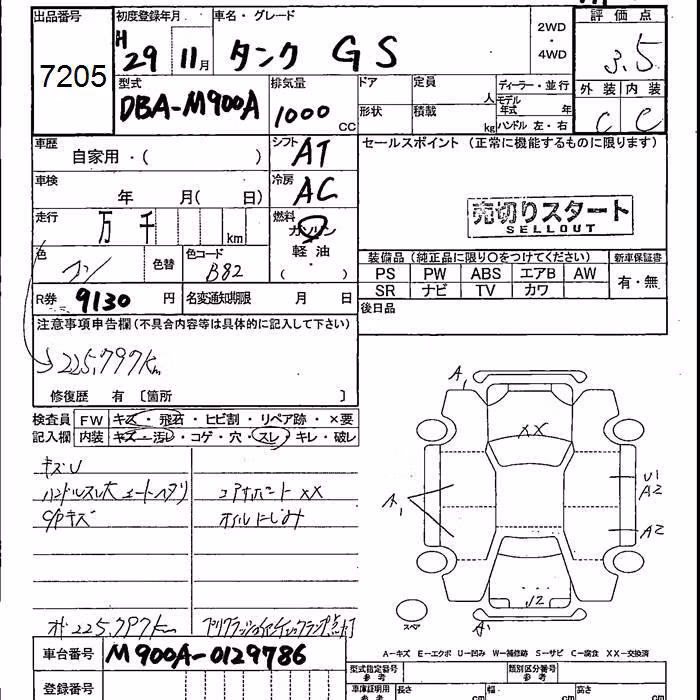 出品番号 初度登録年月 車名・グレード 2WD・4WD 評価点
7205 H29 11月 タンク GS 3.5
型式 排気量 ドア 定員 人 ディーラー・並行 外装 内装
DBA-M900A 1000 CC 形状 積載 kg モデル年式 年 C C
ハンドル 左・右
車歴 自家用・( ) シフト AT セールスポイント (正常に機能するものに限ります)
車検 年 月( 日) 冷房 AC
走行 万 千 km 燃料 ガソリン 軽油 ・( )
売切りスタート
SELLOUT
色 色替 色コード B82
装備品 (純正品に限り〇をつけてください) 新車保証書
PS PW ABS エアB AW 有・無
SR ナビ TV カワ
R券 9130 円 名変通知期限 月 日 後日品
注意事項申告欄(不具合内容等は具体的に記入して下さい)
225,797km
修復歴 有 〔箇所 〕
検査員 FW キズ・飛石・ヒビ割・リペア跡・×要
記入欄 内装 キズ・汚レ・コゲ・穴・スレ・キレ・破レ
キズU
ハンドルスレ大 シートヘタリ コアサポートXX
C/Pキズ オイルにじみ
225,797km プリクラッシュ チェックランプ点灯
A1
XX
A1
U1
A2
A2
J2
A1
スペア
A-キズ E-エクボ U-凹み W-補修跡 S-サビ C-腐食 XX-交換済
車台番号 M900A-0129786
登録番号
型式指定番号 参考 類別区分番号 参考
車庫証明用 参考 長さ cm 幅 cm 高さ cm